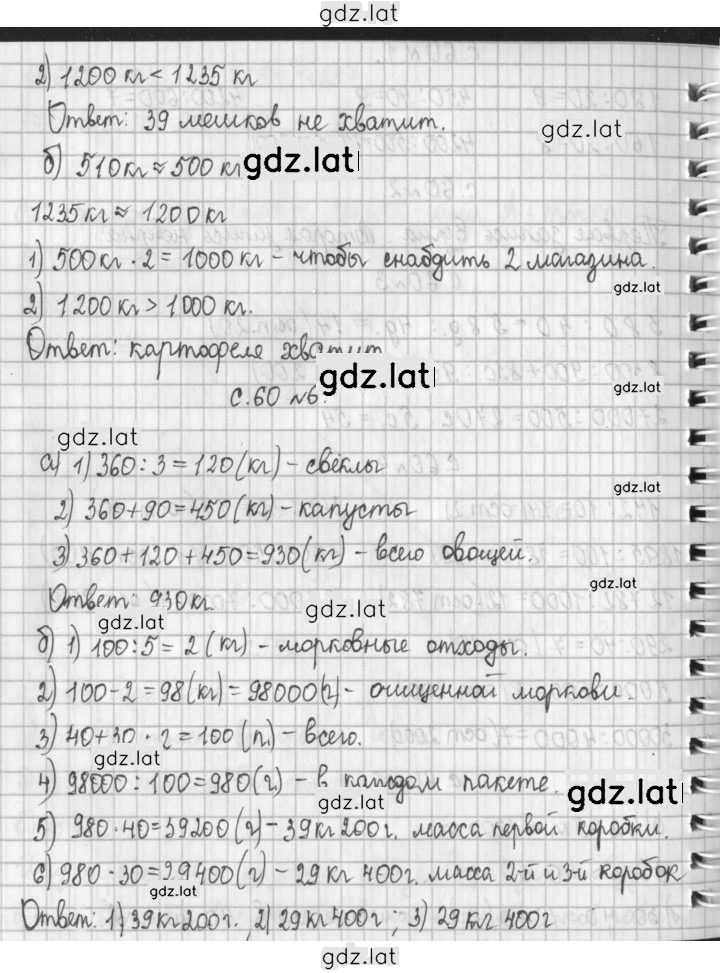 gdz.lat
2) 1200 кг < 1235 кг
Ответ: 39 мешков не хватит.
gdz.lat
б) 510 кг ≈ 500 кг
gdz.lat
1235 кг ≈ 1200 кг
1) 500 кг · 2 = 1000 кг – чтобы снабдить 2 магазина.
gdz.lat
2) 1200 кг > 1000 кг.
Ответ: картофеля хватит
gdz.lat
gdz.lat
с. 60 №6.
gdz.lat
а) 1) 360 : 3 = 120 (кг) – свёклы
gdz.lat
2) 360 + 90 = 450 (кг) – капусты
3) 360 + 120 + 450 = 930 (кг) – всего овощей.
gdz.lat
Ответ: 930 кг
gdz.lat
gdz.lat
б) 1) 100 : 5 = 2 (кг) – морковные отходы.
2) 100 - 2 = 98 (кг) = 98000 (г) – очищенной моркови.
3) 40 + 30 · 2 = 100 (п.) – всего.
gdz.lat
4) 98000 : 100 = 980 (г) – в каждом пакете.
gdz.lat
gdz.lat
5) 980 · 40 = 39200 (г) – 39 кг 200 г. масса первой коробки.
6) 980 · 30 = 29400 (г) – 29 кг 400 г. масса 2-й и 3-й коробок
gdz.lat
Ответ: 1) 39 кг 200 г. 2) 29 кг 400 г ; 3) 29 кг 400 г
gdz.lat